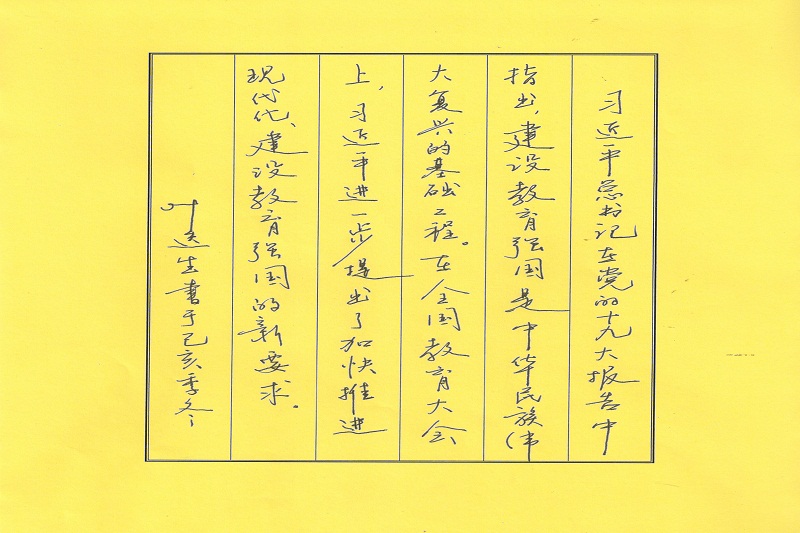 习近平总书记在党的十九大报告中
指出，建设教育强国是中华民族伟
大复兴的基础工程。在全国教育大会
上，习近平进一步提出了加快推进
现代化、建设教育强国的新要求。
叶逸生书于己亥季冬